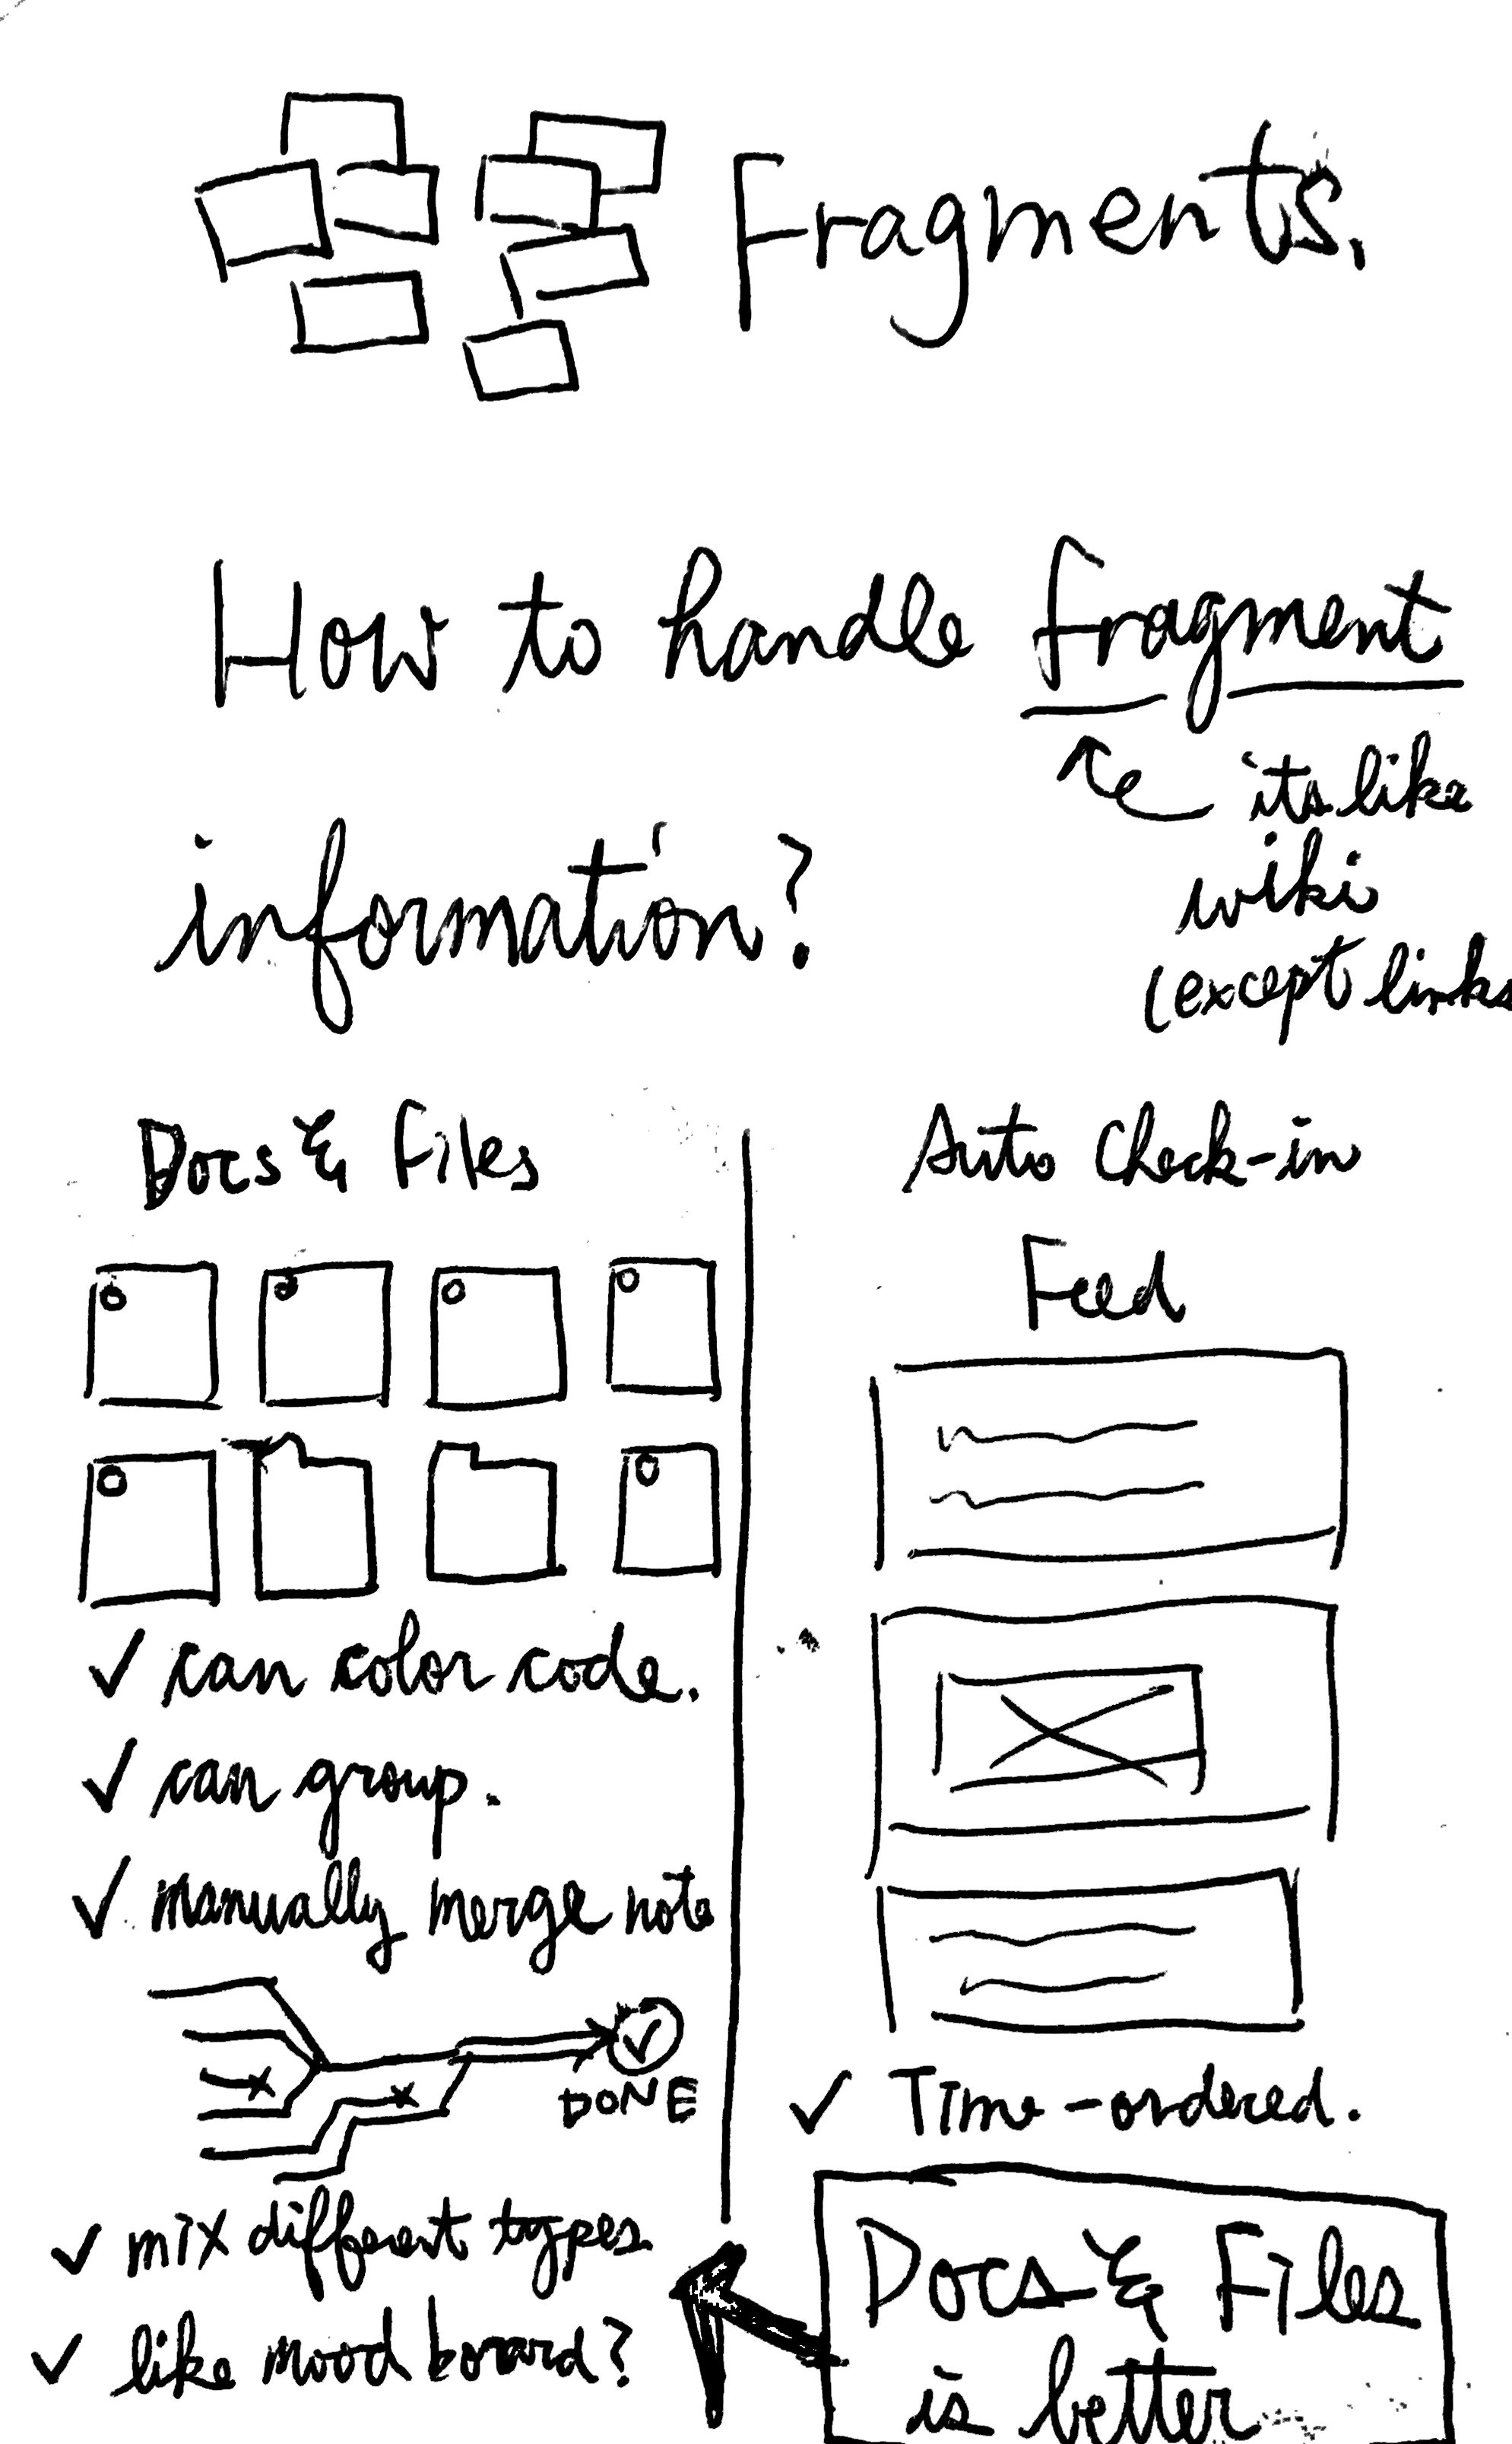 Fragments.
How to handle fragment
its like
wiki
(except links
information?
Docs & Files
✓ can color code.
✓ can group.
✓ manually merge note
DONE
✓ mix different types.
✓ like mood board?
Auto Check-in
Feed
✓ Time-ordered.
Docs & Files
is better